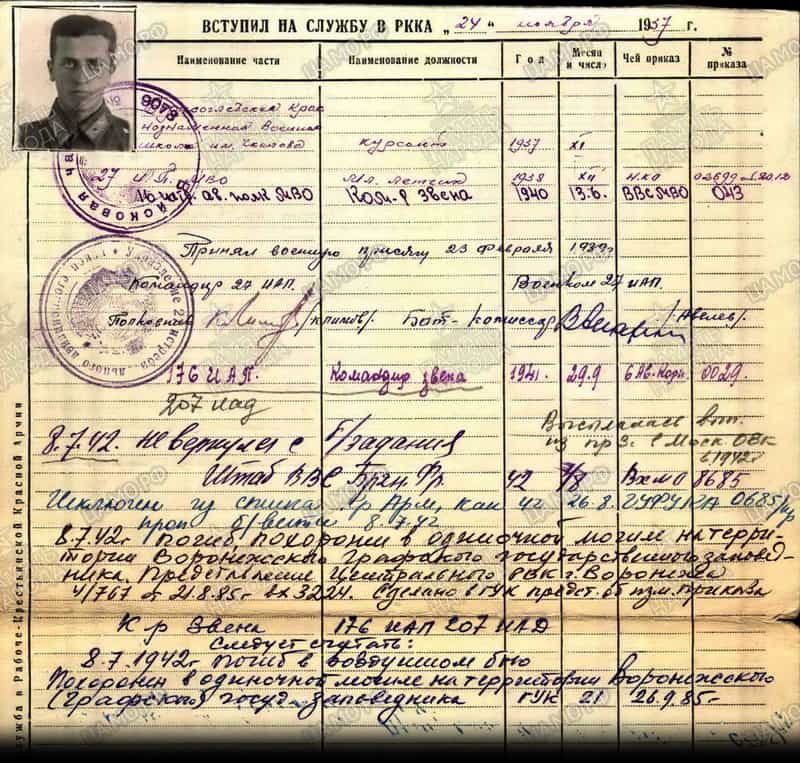 ВСТУПИЛ НА СЛУЖБУ В РККА „24“ ноября 1937 г.
Наименование части Наименование должности Год Месяц и число Чей приказ № приказа
Краснознаменная Военная
школа им. Чкалова курсант 1937 XI
27 И.А.П. МВО Мл. летчик 1938 XII НКО
16 ав. полк МВО Ком-р звена 1940 13.6. ВВС МВО 043
Принял военную присягу 23 февраля 1939г
Командир 27 ИАП. Военком 27 ИАП.
Полковник /Климов/. Бат-комиссар
176 ИАП. Командир звена 1941. 29.9 6 Ав. Корп. 0029.
207 иад
8.7.42. не вернулся с б/задания
Штаб ВВС Брян. Фр. 42 7/8 8685
Исключен из списка Кр Арм, как 42 26.8. ГУФУКА 0685/пр
проп б/вести 8.7.42
8.7.42г погиб похоронен в одиночной могиле на терри-
тории Воронежского Графского государственного заповед-
ника. Представление Центрального РВК г. Воронежа
4/767 от 21.8.85г вх 3224. Сделано в ГУК предст. об изм. приказа
К-р Звена 176 ИАП 207 ИАД
Следует считать:
8.7.1942г погиб в воздушном бою
Похоронен в одиночной могиле на территории Воронежского
(Графского) госуд. заповедника ГУК 21 26.9.85г
Служба в Рабоче-Крестьянской Красной Армии
ЦАМО.РФ